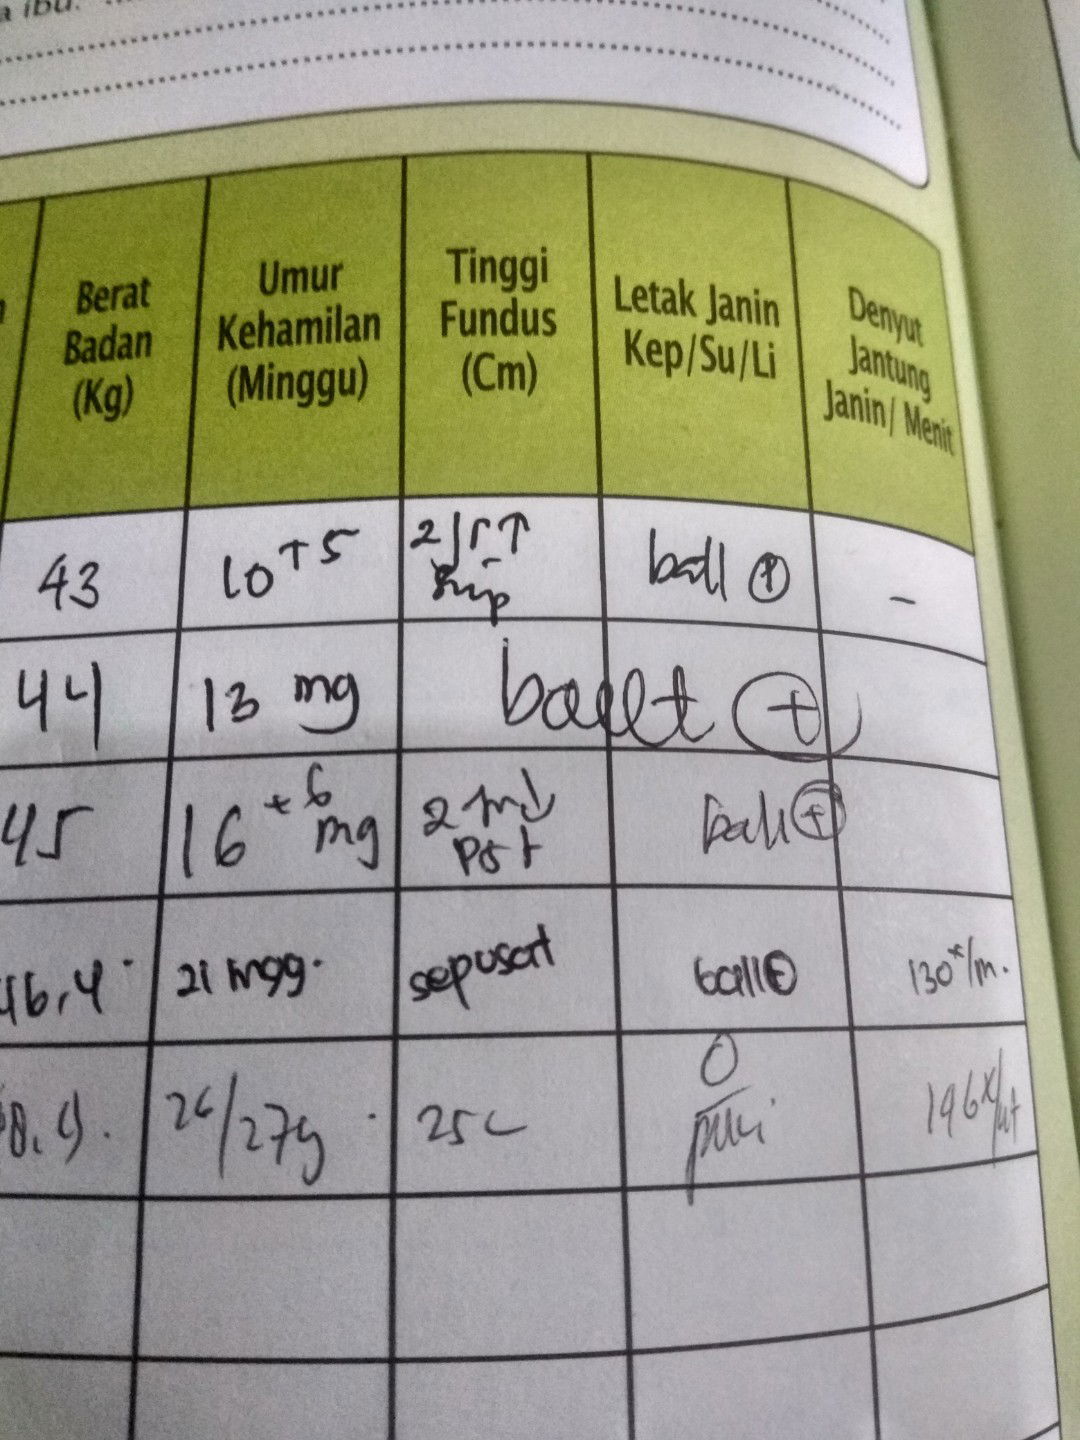 a ibu.
Berat Badan (Kg)
Umur Kehamilan (Minggu)
Tinggi Fundus (Cm)
Letak Janin Kep/Su/Li
Denyut Jantung Janin/ Menit
43 10 +5 2 ↑ ball (+) –
44 13 mg ballt (+)
45 16 +6 mg 2 ↓ pst ball (+)
46,4 21 mgg. sepusat ball (+) 130x/m.
26/27g 25c